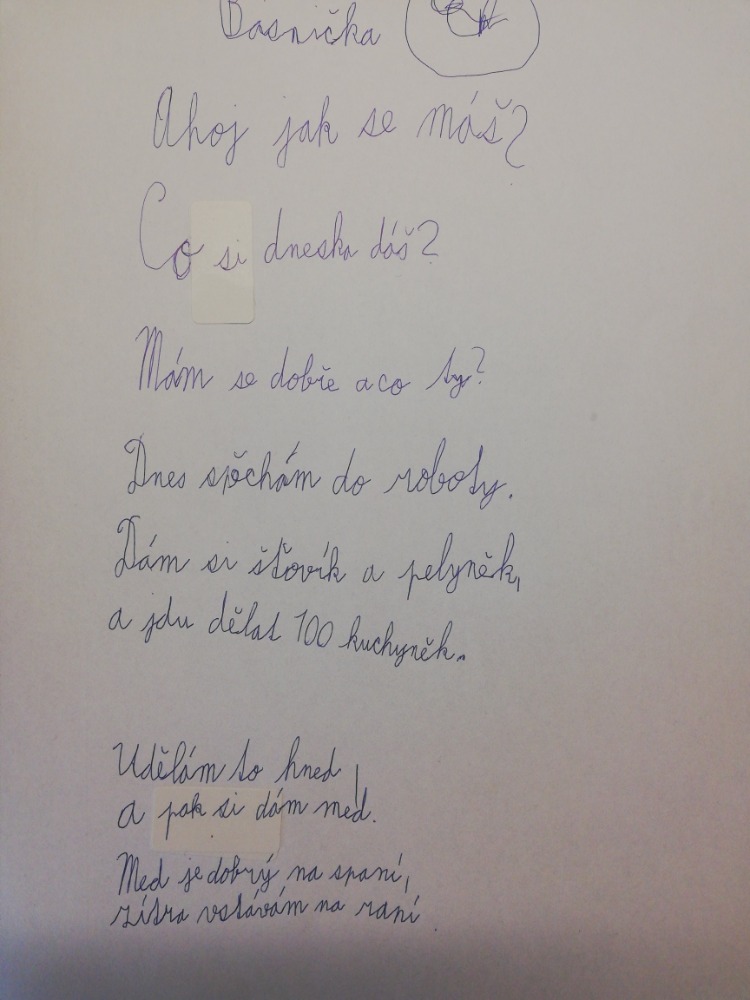 Básnička
Ahoj jak se máš?
Co si dneska dáš?
Mám se dobře a co ty?
Dnes spěchám do roboty.
Dám si šťovík a pelyněk,
a jdu dělat 100 kuchyněk.
Udělám to hned,
a pak si dám med.
Med je dobrý na spaní,
zítra vstávám na raní